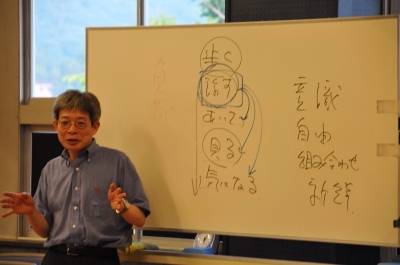 歩く
話す
あいて
見る
気になる
意識
自由
組み合わせ
新鮮